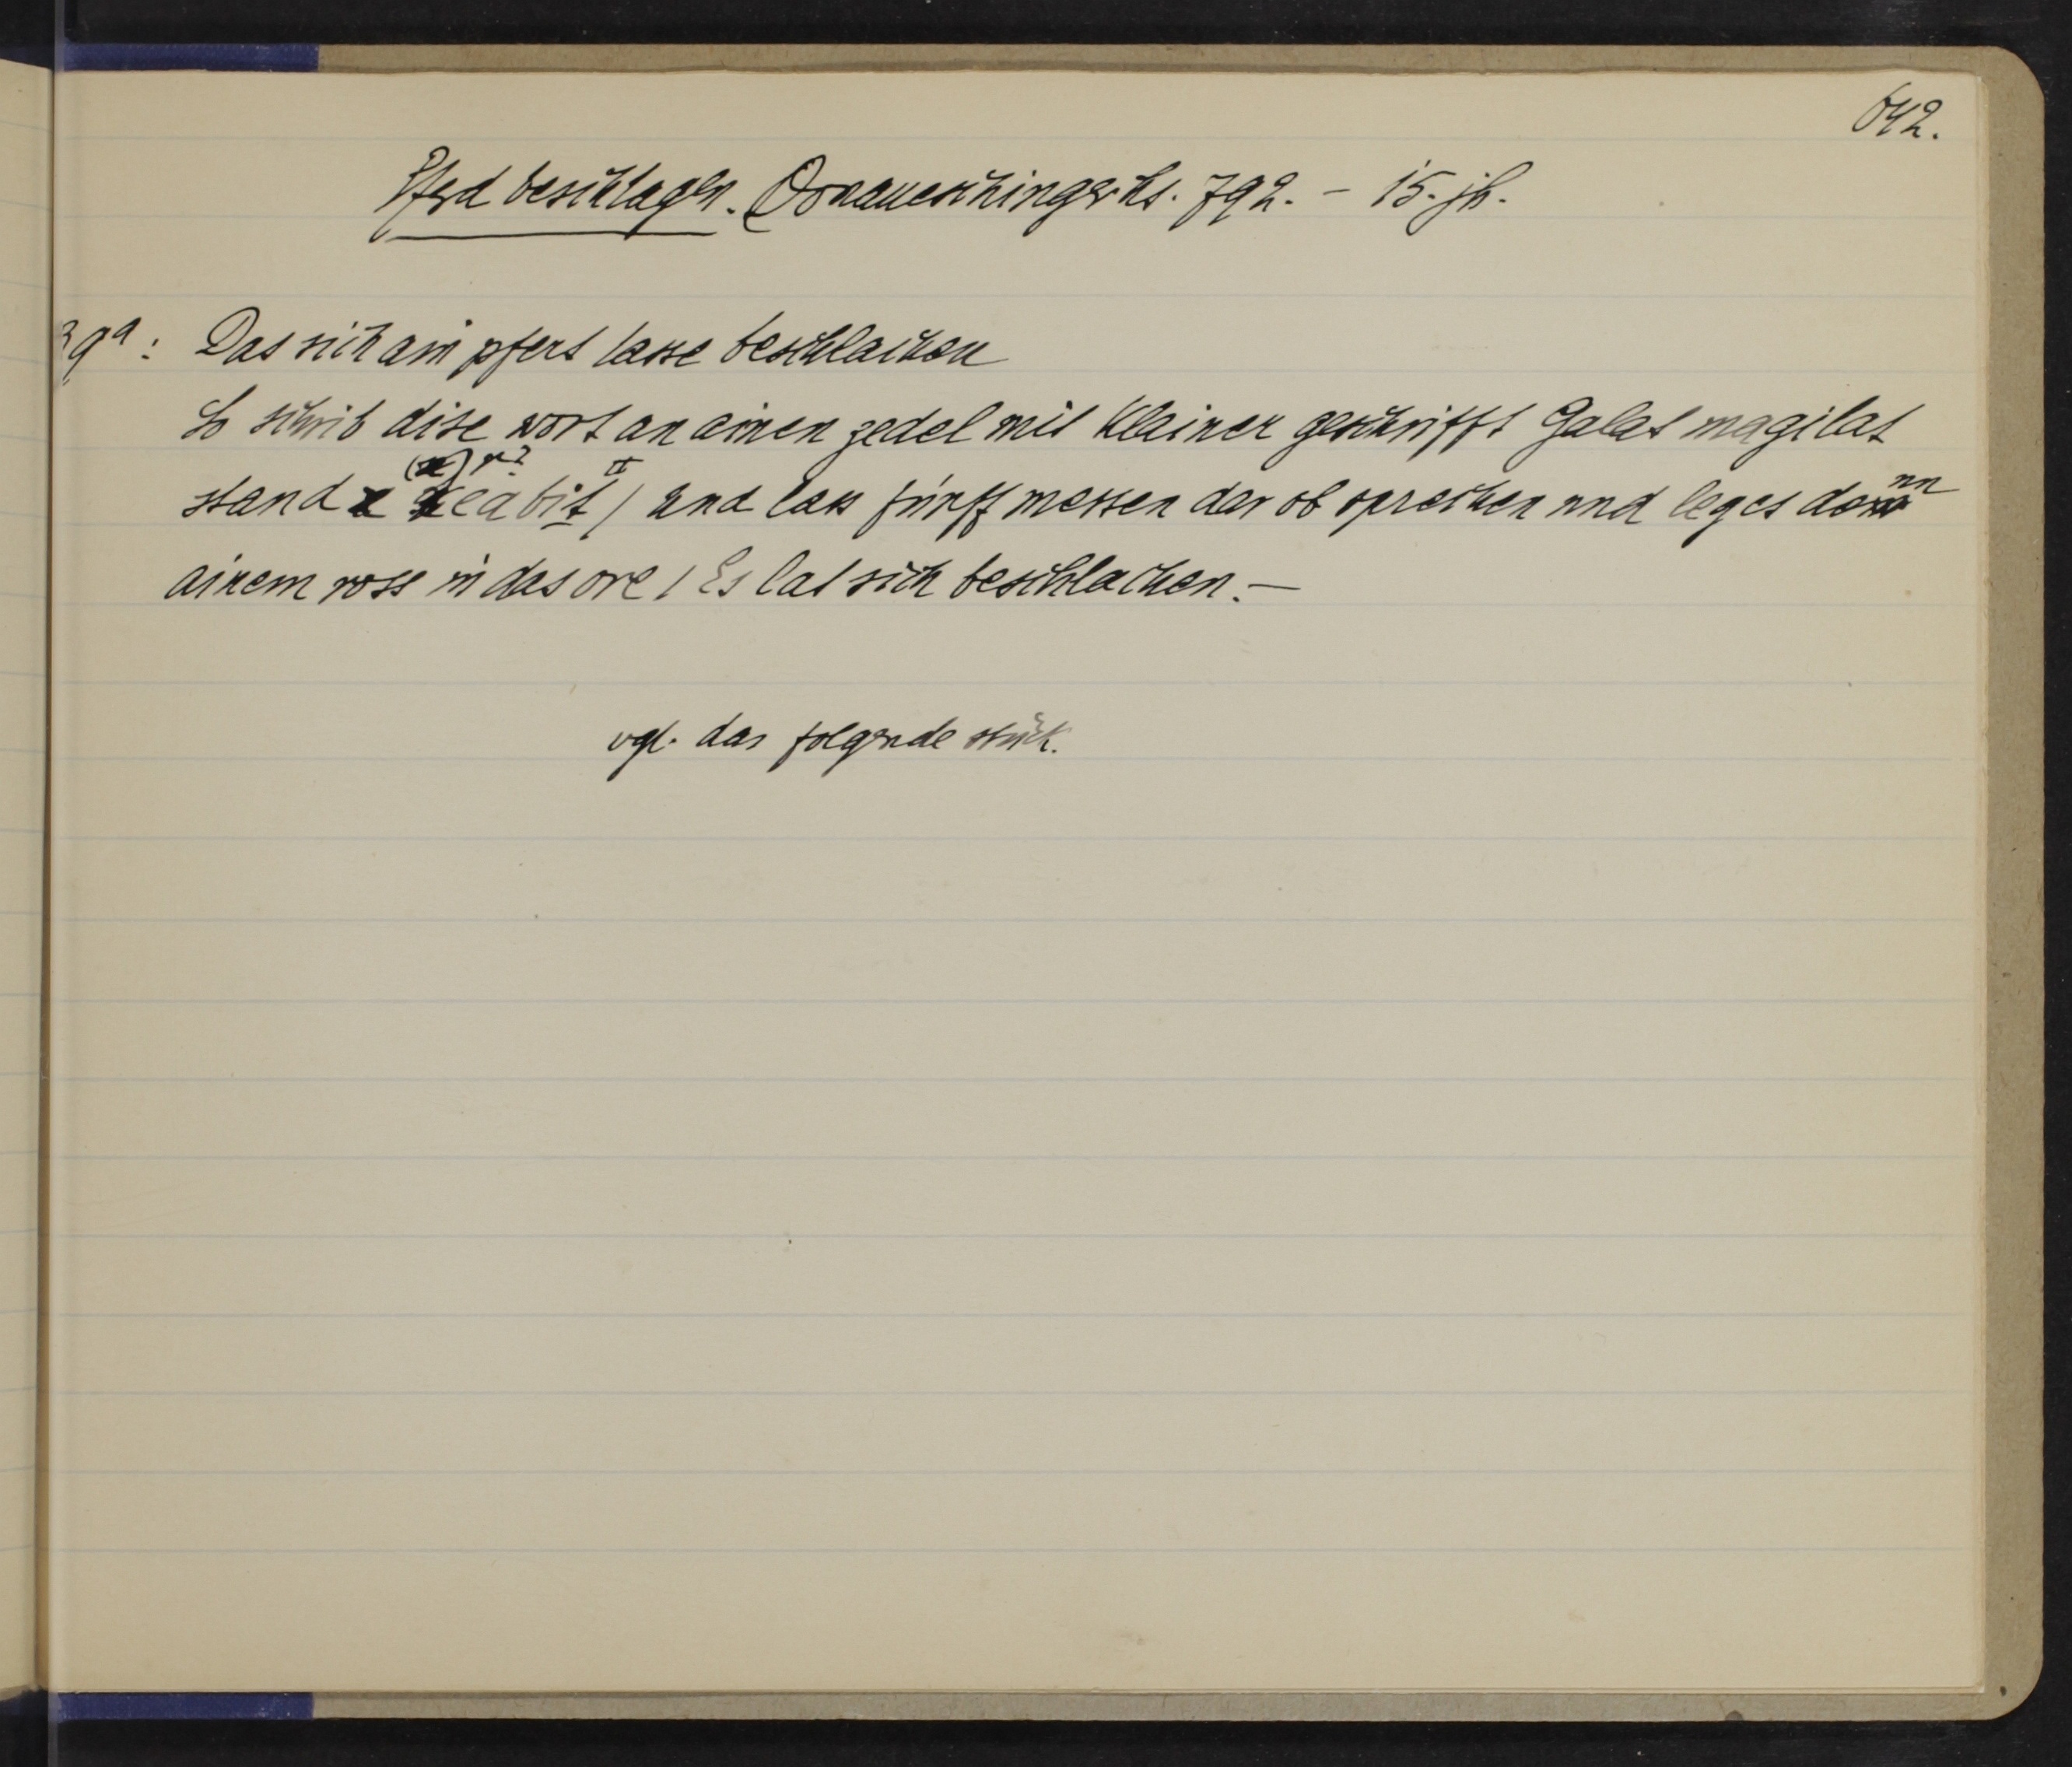 642.
Pferd beschlagen. Donaueschinger hs. 792. – 15. jh.
39a: Das sich ain pfert lasse beschlachen
So schrib dise wort an ainen zedel mit klainer geschrifft Galat magilat
stand eabit / und lass fúnff messen dar ob sprechen und leges dann
ainem ross in das ore / Es lat sich beschlachen. –
vgl. das folgende stück.